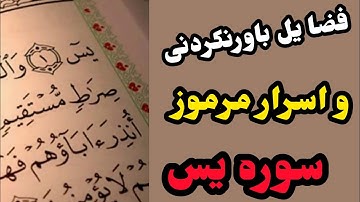 فضایل باورنکردنی
و اسرار مرموز
سوره یس
یس ۝۱ وَالْ
صِرَٰطٍ مُّسْتَقِيمٍ
أُنذِرَ ءَابَآؤُهُمْ فَهُ
لَا يُؤْمِنُ